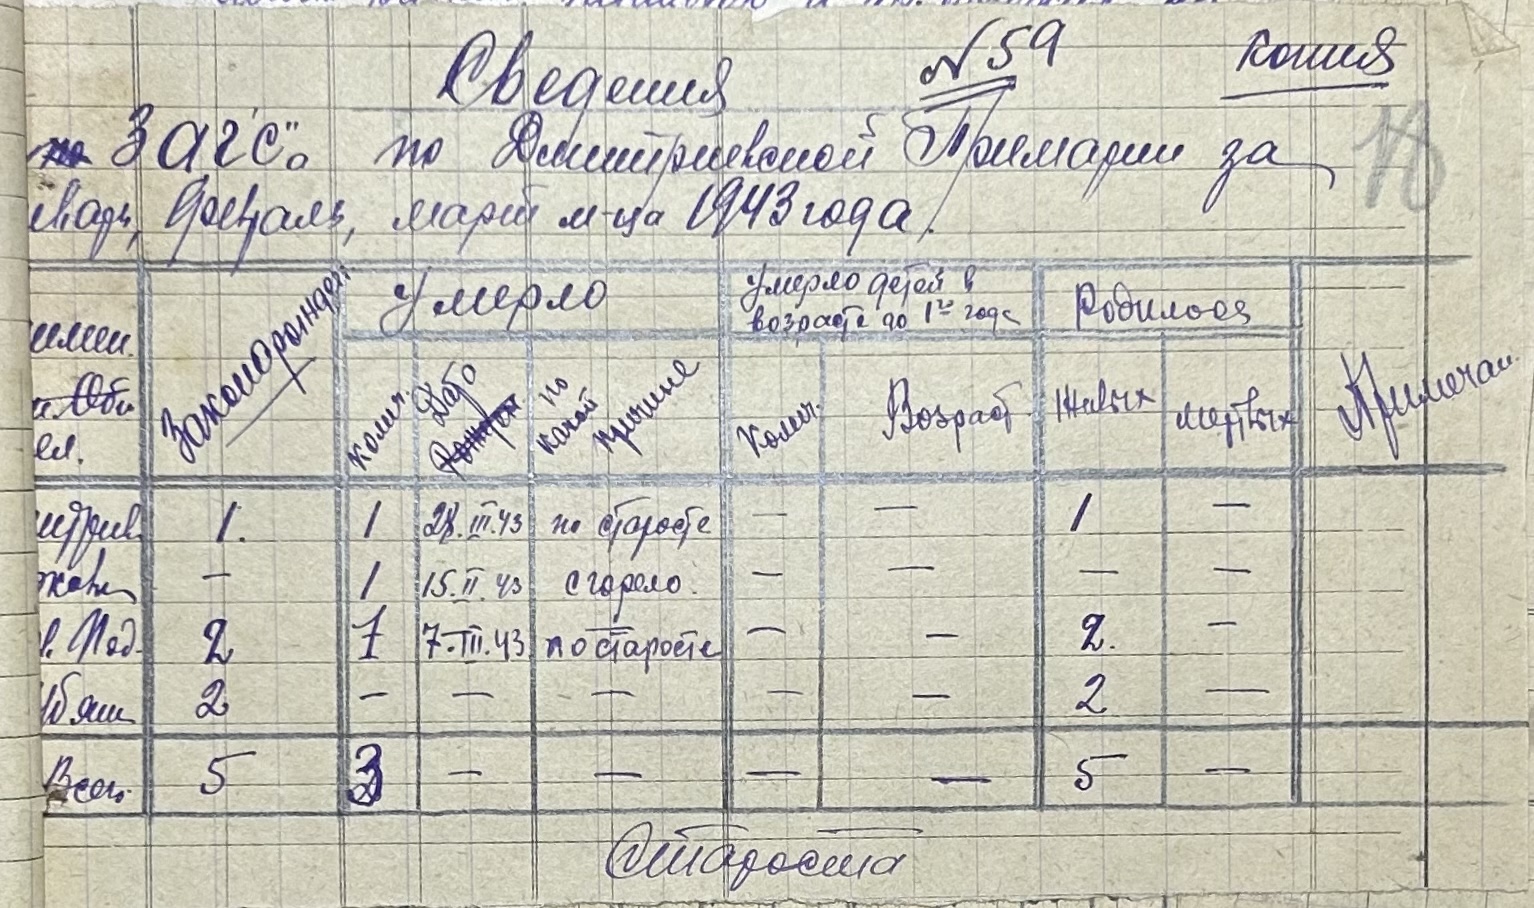 Сведения № 59 копия
"ЗАГС" по Дмитриевской Примарии за
январь, февраль, март м-ца 1943 года.
Умерло Умерло детей в возрасте до 1го года Родилось
колич. Дата по какой причине Колич. Возраст Живых мертвых Примечан.
1. 1 28.III.43 по старости — — 1 —
— 1 15.II.43 сгорело. — — — —
Под. 2 1 7.III.43 по старости — — 2. —
2 — — — — — 2 —
Всего 5 3 — — — — 5 —
Староста